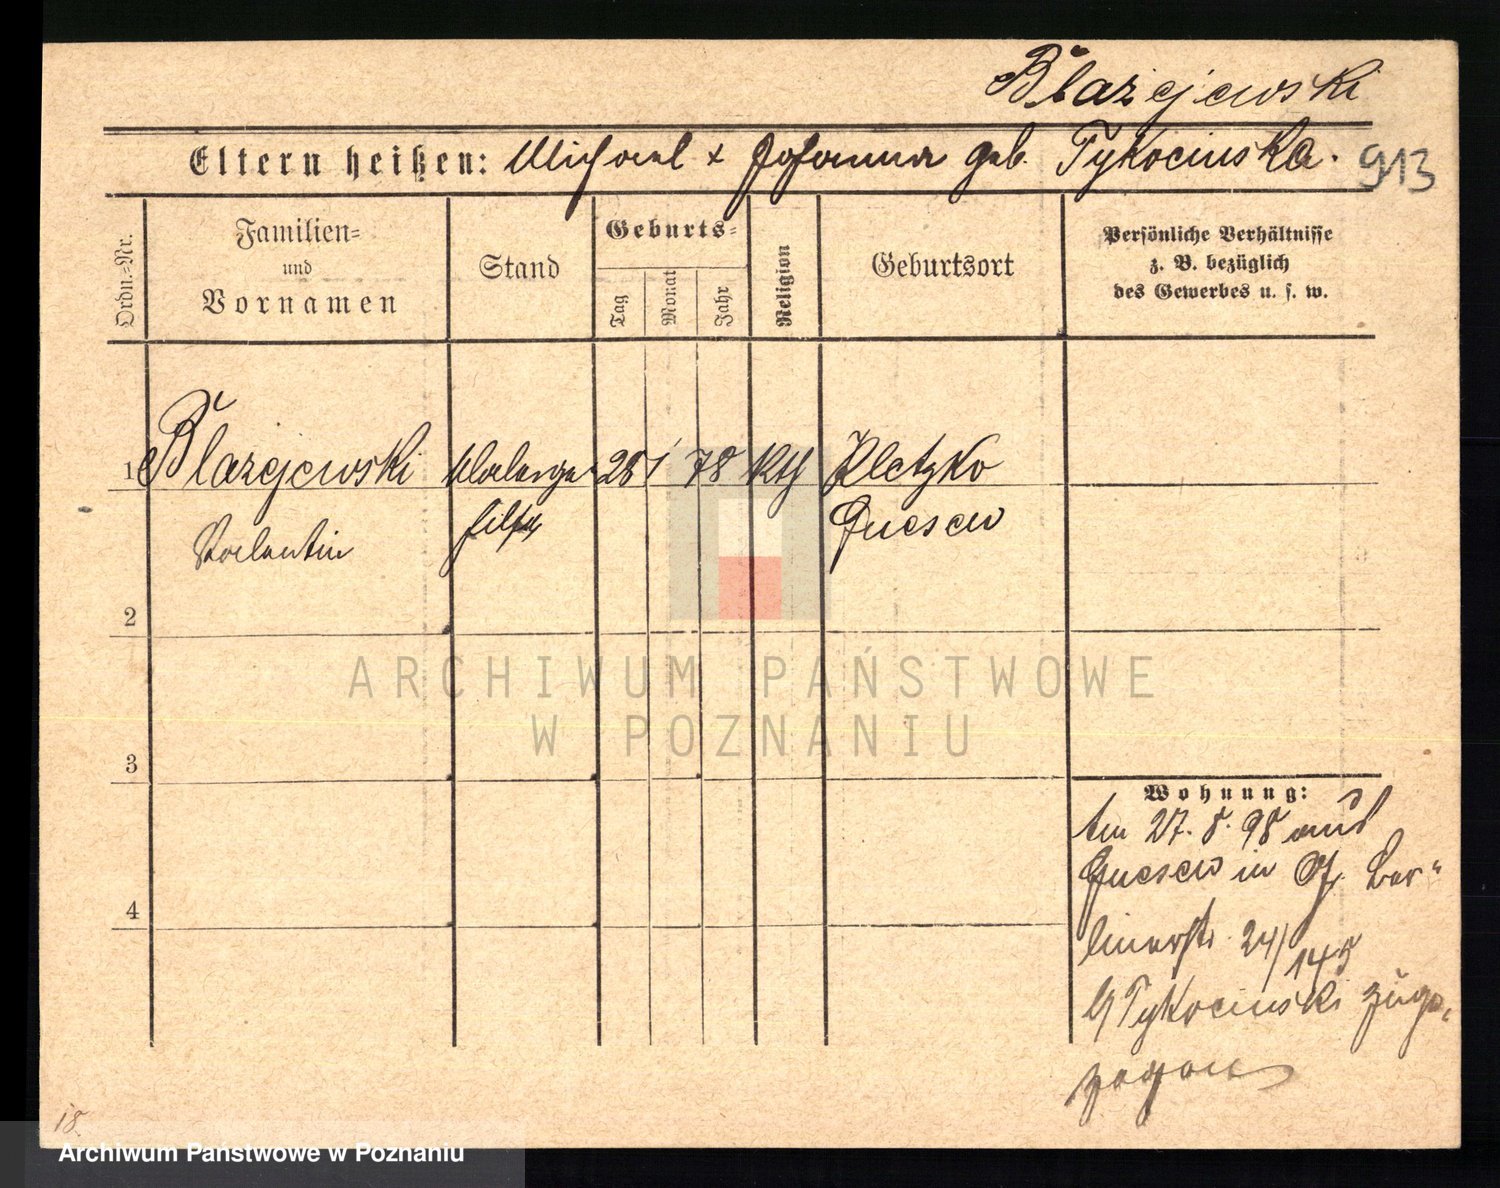 Blażejewski
Eltern heißen: Michael + Johanna geb. Tykocinska.
913
Ordn.=Nr.
Familien=
und
Vornamen
Stand
Geburts=
Tag
Monat
Jahr
Religion
Geburtsort
Persönliche Verhältnisse
z. B. bezüglich
des Gewerbes u. s. w.
1 Blazejewski 28 1 78 Kth Kletzko
Valentin Gnesen
2
3
4
Wohnung:
Am 27. 8. 98 aus
Gnesen in Ber-
linerstr. 24/145
Tykocinski zuge-
zogen
18.
ARCHIWUM PAŃSTWOWE
W POZNANIU
Archiwum Państwowe w Poznaniu